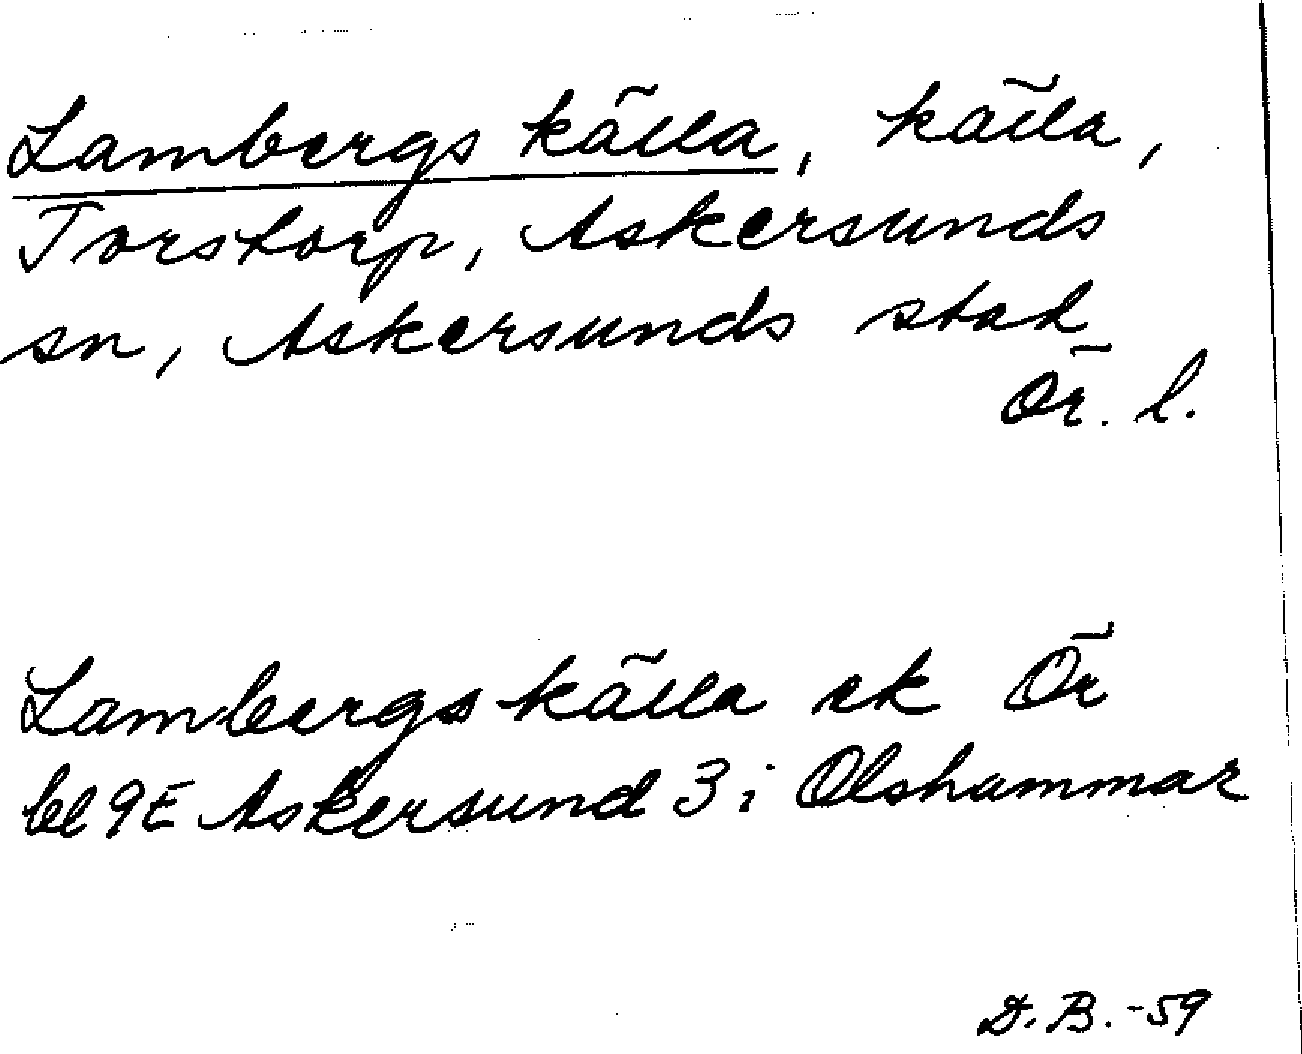 Lambergs källa, källa,
Torstorp, Askersunds
sn, Askersunds stad
Ör. l.
Lambergs källa ek Ör
bl 9E Askersund 3i Olshammar
D.B. -59